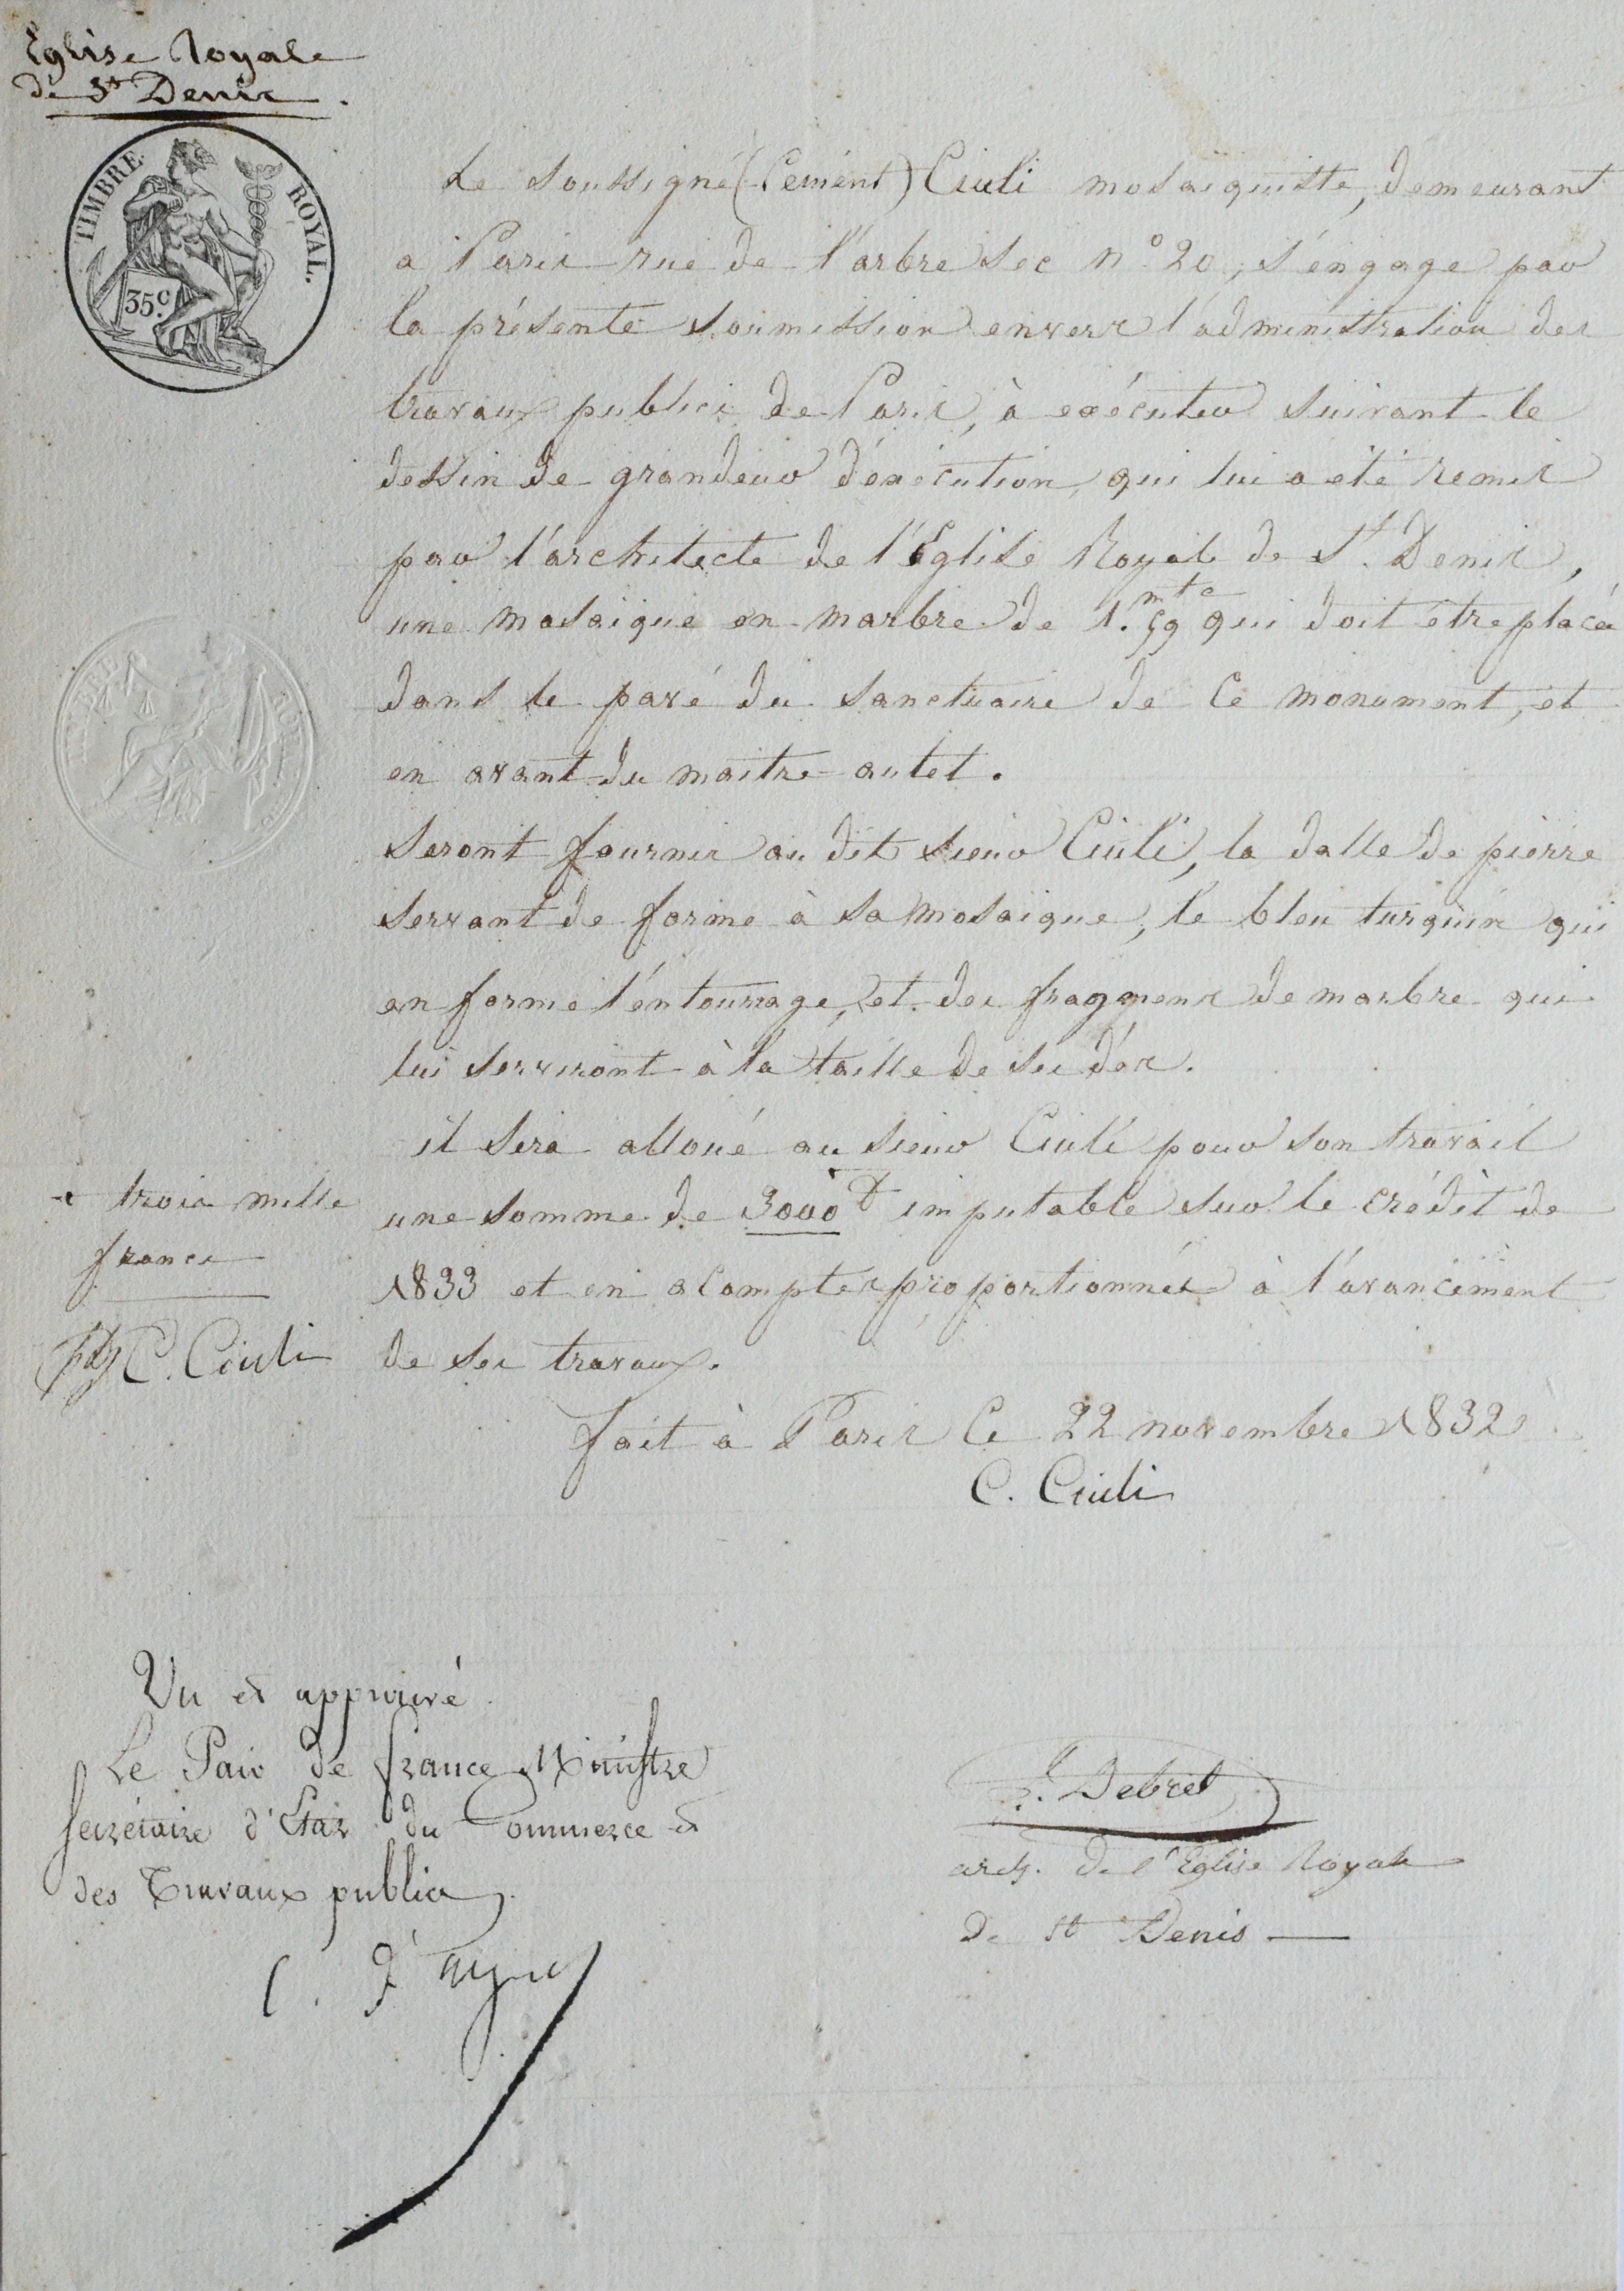 Eglise Royale
de St Denis.
TIMBRE ROYAL.
35c.
Le soussigné (Cément) Ciuli mosaiquiste, demeurant
a Paris rue de l'arbre sec n° 20, s'éngage par
la présente soumission envers l'administration des
travaux publics de Paris, à exécuter suivant le
dessin de grandeur d'éxécution, qui lui a été remis
par l'architecte de l'église Royale de St. Denis,
une mosaïque en marbre de 1.mtc 59 qui doit être placée
dans le pavé du sanctuaire de ce monument, et
en avant du maitre autel.
Seront fournis au dit sieur Ciuli, la dalle de pierre
servant de forme à sa mosaïque, le bleu turquin qui
en forme l'éntourrage, et des fragmens de marbre qui
lui serviront à la taille de ses dés.
il sera alloué au sieur Ciuli pour son travail
une somme de 3000 imputable sur le crédit de
1833 et en acomptes proportionnés à l'avancement
de ses travaux.
trois mille
francs
C. Ciuli
fait à Paris Ce 22 novembre 1832
C. Ciuli
Vu et approuvé.
Le Pair de france Ministre
secrétaire d'Etat du Commerce et
des Travaux publics,
Debret
arch. de l'Eglise Royale
de St Denis